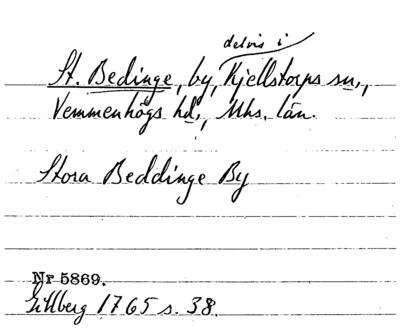 delvis i
St. Bedinge, by, Kjellstorps sn.,
Vemmenhögs hd., Mhs. län.
Stora Beddinge By
Nr 5869.
Gillberg 1765 s. 38.